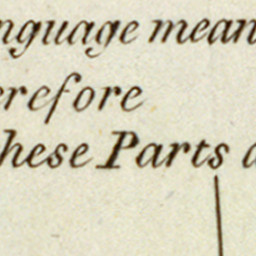 nguage mean
erefore
hese Parts a